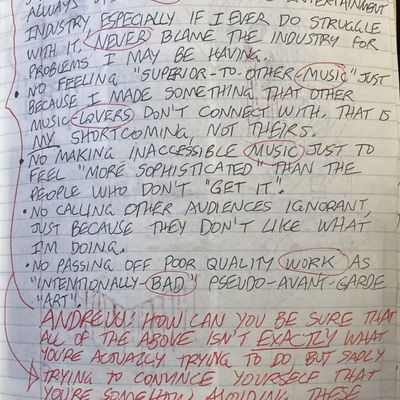 ENTERTAINMENT
INDUSTRY ESPECIALLY IF I EVER DO STRUGGLE
WITH IT, NEVER BLAME THE INDUSTRY FOR
PROBLEMS I MAY BE HAVING.
• NO FEELING "SUPERIOR-TO-OTHER-MUSIC" JUST
BECAUSE I MADE SOMETHING THAT OTHER
MUSIC-LOVERS DON'T CONNECT WITH. THAT IS
MY SHORTCOMING, NOT THEIRS.
• NO MAKING INACCESSIBLE MUSIC JUST TO
FEEL "MORE SOPHISTICATED" THAN THE
PEOPLE WHO DON'T "GET IT".
• NO CALLING OTHER AUDIENCES IGNORANT,
JUST BECAUSE THEY DON'T LIKE WHAT
I'M DOING.
• NO PASSING OFF POOR QUALITY WORK AS
"INTENTIONALLY-BAD" PSEUDO-AVANT-GARDE
"ART".
ANDREW: HOW CAN YOU BE SURE THAT
ALL OF THE ABOVE ISN'T EXACTLY WHAT
YOU'RE ACTUALLY TRYING TO DO, BUT SADLY
TRYING TO CONVINCE YOURSELF THAT
YOU'RE SOMEHOW AVOIDING THESE